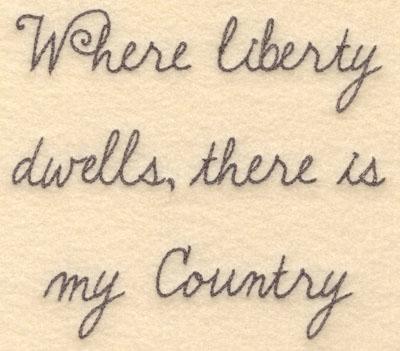 Where liberty
dwells, there is
my Country